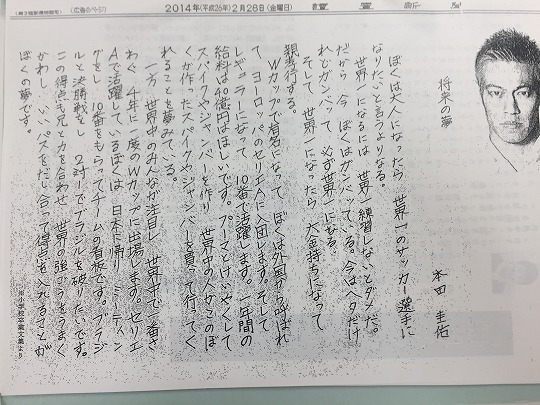 2014年(平成26年)2月28日(金曜日)
(広告のページ)
将来の夢
本田 圭佑
ぼくは大人になったら 世界一のサッカー選手に
なりたいと言うよりなる。
世界一になるには 世界一練習しないとダメだ。
だから 今 ぼくはガンバッている。今はヘタだけ
れどガンバッて 必ず世界一になる。
そして 世界一になったら 大金持ちになって
親孝行する。
Wカップで有名になって ぼくは外国から呼ばれ
て ヨーロッパのセリエAに入団します。そして
レギュラーになって 10番で活躍します。一年間の
給料は40億円はほしいです。プーマとけいやくして
スパイクやジャンバーを作り 世界中の人がこのぼ
くが作ったスパイクやジャンバーを買って行ってく
れることを夢みている。
一方 世界中のみんなが注目し 世界中で一番さ
わぐ 4年に一度のWカップに出場します。セリエ
Aで活躍しているぼくは 日本に帰り ミーティン
グをし 10番をもらってチームの看板です。ブラジ
ルと決勝戦をし 2対1でブラジルを破りたいです。
この得点も兄と力を合わせ 世界の強ごうをうまく
かわし いいパスをだし合って得点を入れることが
ぼくの夢です。
小学校卒業文集より